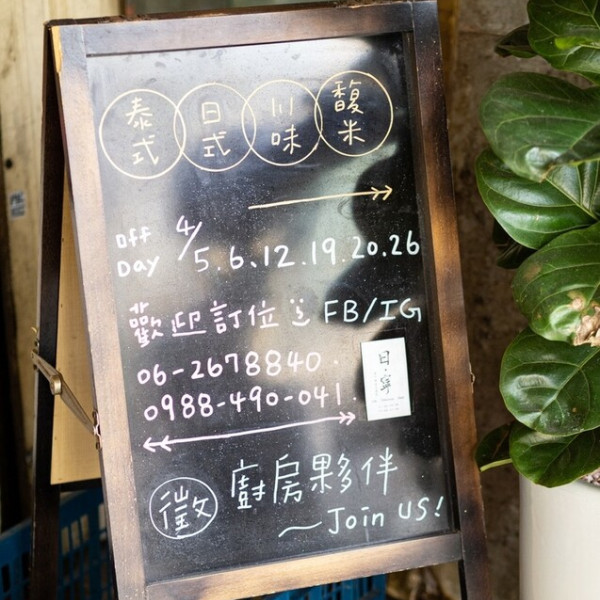 泰式 日式 川味 馥米
Off Day 4/5.6.12.19.20.26
歡迎訂位 FB/IG
06-2678840.
0988-490-041.
日寧
徵 廚房夥伴
~Join US!